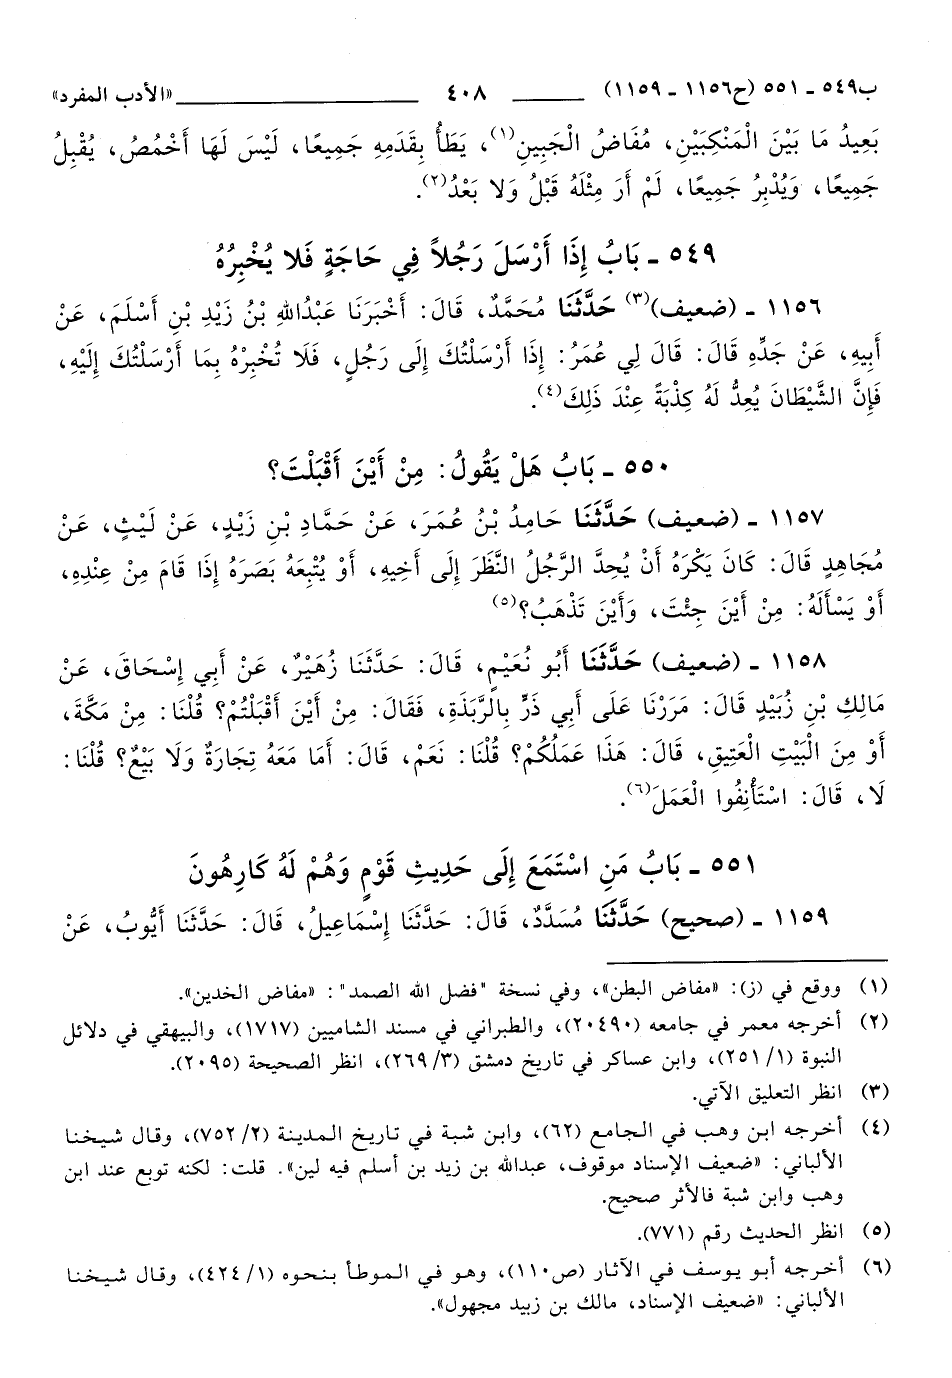 ب٥٤٩ ـ ٥٥١ (ح١١٥٦ ـ ١١٥٩) ٤٠٨ «الأدب المفرد»
بَعِيدُ مَا بَيْنَ الْمَنْكِبَيْنِ، مُفَاضُ الْجَبِينِ(١)، يَطَأُ بِقَدَمِهِ جَمِيعًا، لَيْسَ لَهَا أَخْمُصُ، يُقْبِلُ
جَمِيعًا، وَيُدْبِرُ جَمِيعًا، لَمْ أَرَ مِثْلَهُ قَبْلُ وَلا بَعْدُ(٢).
٥٤٩ ـ بَابُ إِذَا أَرْسَلَ رَجُلاً فِي حَاجَةٍ فَلا يُخْبِرُهُ
١١٥٦ ـ (ضعيف)(٣) حَدَّثَنَا مُحَمَّدٌ، قَالَ: أَخْبَرَنَا عَبْدُاللهِ بْنُ زَيْدِ بْنِ أَسْلَمَ، عَنْ
أَبِيهِ، عَنْ جَدِّهِ قَالَ: قَالَ لِي عُمَرُ: إِذَا أَرْسَلْتُكَ إِلَى رَجُلٍ، فَلَا تُخْبِرْهُ بِمَا أَرْسَلْتُكَ إِلَيْهِ،
فَإِنَّ الشَّيْطَانَ يُعِدُّ لَهُ كِذْبَةً عِنْدَ ذَلِكَ(٤).
٥٥٠ ـ بَابُ هَلْ يَقُولُ: مِنْ أَيْنَ أَقْبَلْتَ؟
١١٥٧ ـ (ضعيف) حَدَّثَنَا حَامِدُ بْنُ عُمَرَ، عَنْ حَمَّادِ بْنِ زَيْدٍ، عَنْ لَيْثٍ، عَنْ
مُجَاهِدٍ قَالَ: كَانَ يَكْرَهُ أَنْ يُحِدَّ الرَّجُلُ النَّظَرَ إِلَى أَخِيهِ، أَوْ يُتْبِعَهُ بَصَرَهُ إِذَا قَامَ مِنْ عِنْدِهِ،
أَوْ يَسْأَلَهُ: مِنْ أَيْنَ جِئْتَ، وَأَيْنَ تَذْهَبُ؟(٥)
١١٥٨ ـ (ضعيف) حَدَّثَنَا أَبُو نُعَيْمٍ، قَالَ: حَدَّثَنَا زُهَيْرٌ، عَنْ أَبِي إِسْحَاقَ، عَنْ
مَالِكِ بْنِ زُبَيْدٍ قَالَ: مَرَرْنَا عَلَى أَبِي ذَرٍّ بِالرَّبَذَةِ، فَقَالَ: مِنْ أَيْنَ أَقْبَلْتُمْ؟ قُلْنَا: مِنْ مَكَّةَ،
أَوْ مِنَ الْبَيْتِ الْعَتِيقِ، قَالَ: هَذَا عَمَلُكُمْ؟ قُلْنَا: نَعَمْ، قَالَ: أَمَا مَعَهُ تِجَارَةٌ وَلَا بَيْعٌ؟ قُلْنَا:
لَا، قَالَ: اسْتَأْنِفُوا الْعَمَلَ(٦).
٥٥١ ـ بَابُ مَنِ اسْتَمَعَ إِلَى حَدِيثِ قَوْمٍ وَهُمْ لَهُ كَارِهُونَ
١١٥٩ ـ (صحيح) حَدَّثَنَا مُسَدَّدٌ، قَالَ: حَدَّثَنَا إِسْمَاعِيلُ، قَالَ: حَدَّثَنَا أَيُّوبُ، عَنْ
(١) ووقع في (ز): «مفاض البطن»، وفي نسخة "فضل الله الصمد": «مفاض الخدين».
(٢) أخرجه معمر في جامعه (٢٠٤٩٠)، والطبراني في مسند الشاميين (١٧١٧)، والبيهقي في دلائل
النبوة (٢٥١/١)، وابن عساكر في تاريخ دمشق (٢٦٩/٣)، انظر الصحيحة (٢٠٩٥).
(٣) انظر التعليق الآتي.
(٤) أخرجه ابن وهب في الجامع (٦٢)، وابن شبة في تاريخ المدينة (٧٥٢/٢)، وقال شيخنا
الألباني: «ضعيف الإسناد موقوف، عبدالله بن زيد بن أسلم فيه لين». قلت: لكنه توبع عند ابن
وهب وابن شبة فالأثر صحيح.
(٥) انظر الحديث رقم (٧٧١).
(٦) أخرجه أبو يوسف في الآثار (ص١١٠)، وهو في الموطأ بنحوه (٤٢٤/١)، وقال شيخنا
الألباني: «ضعيف الإسناد، مالك بن زبيد مجهول».